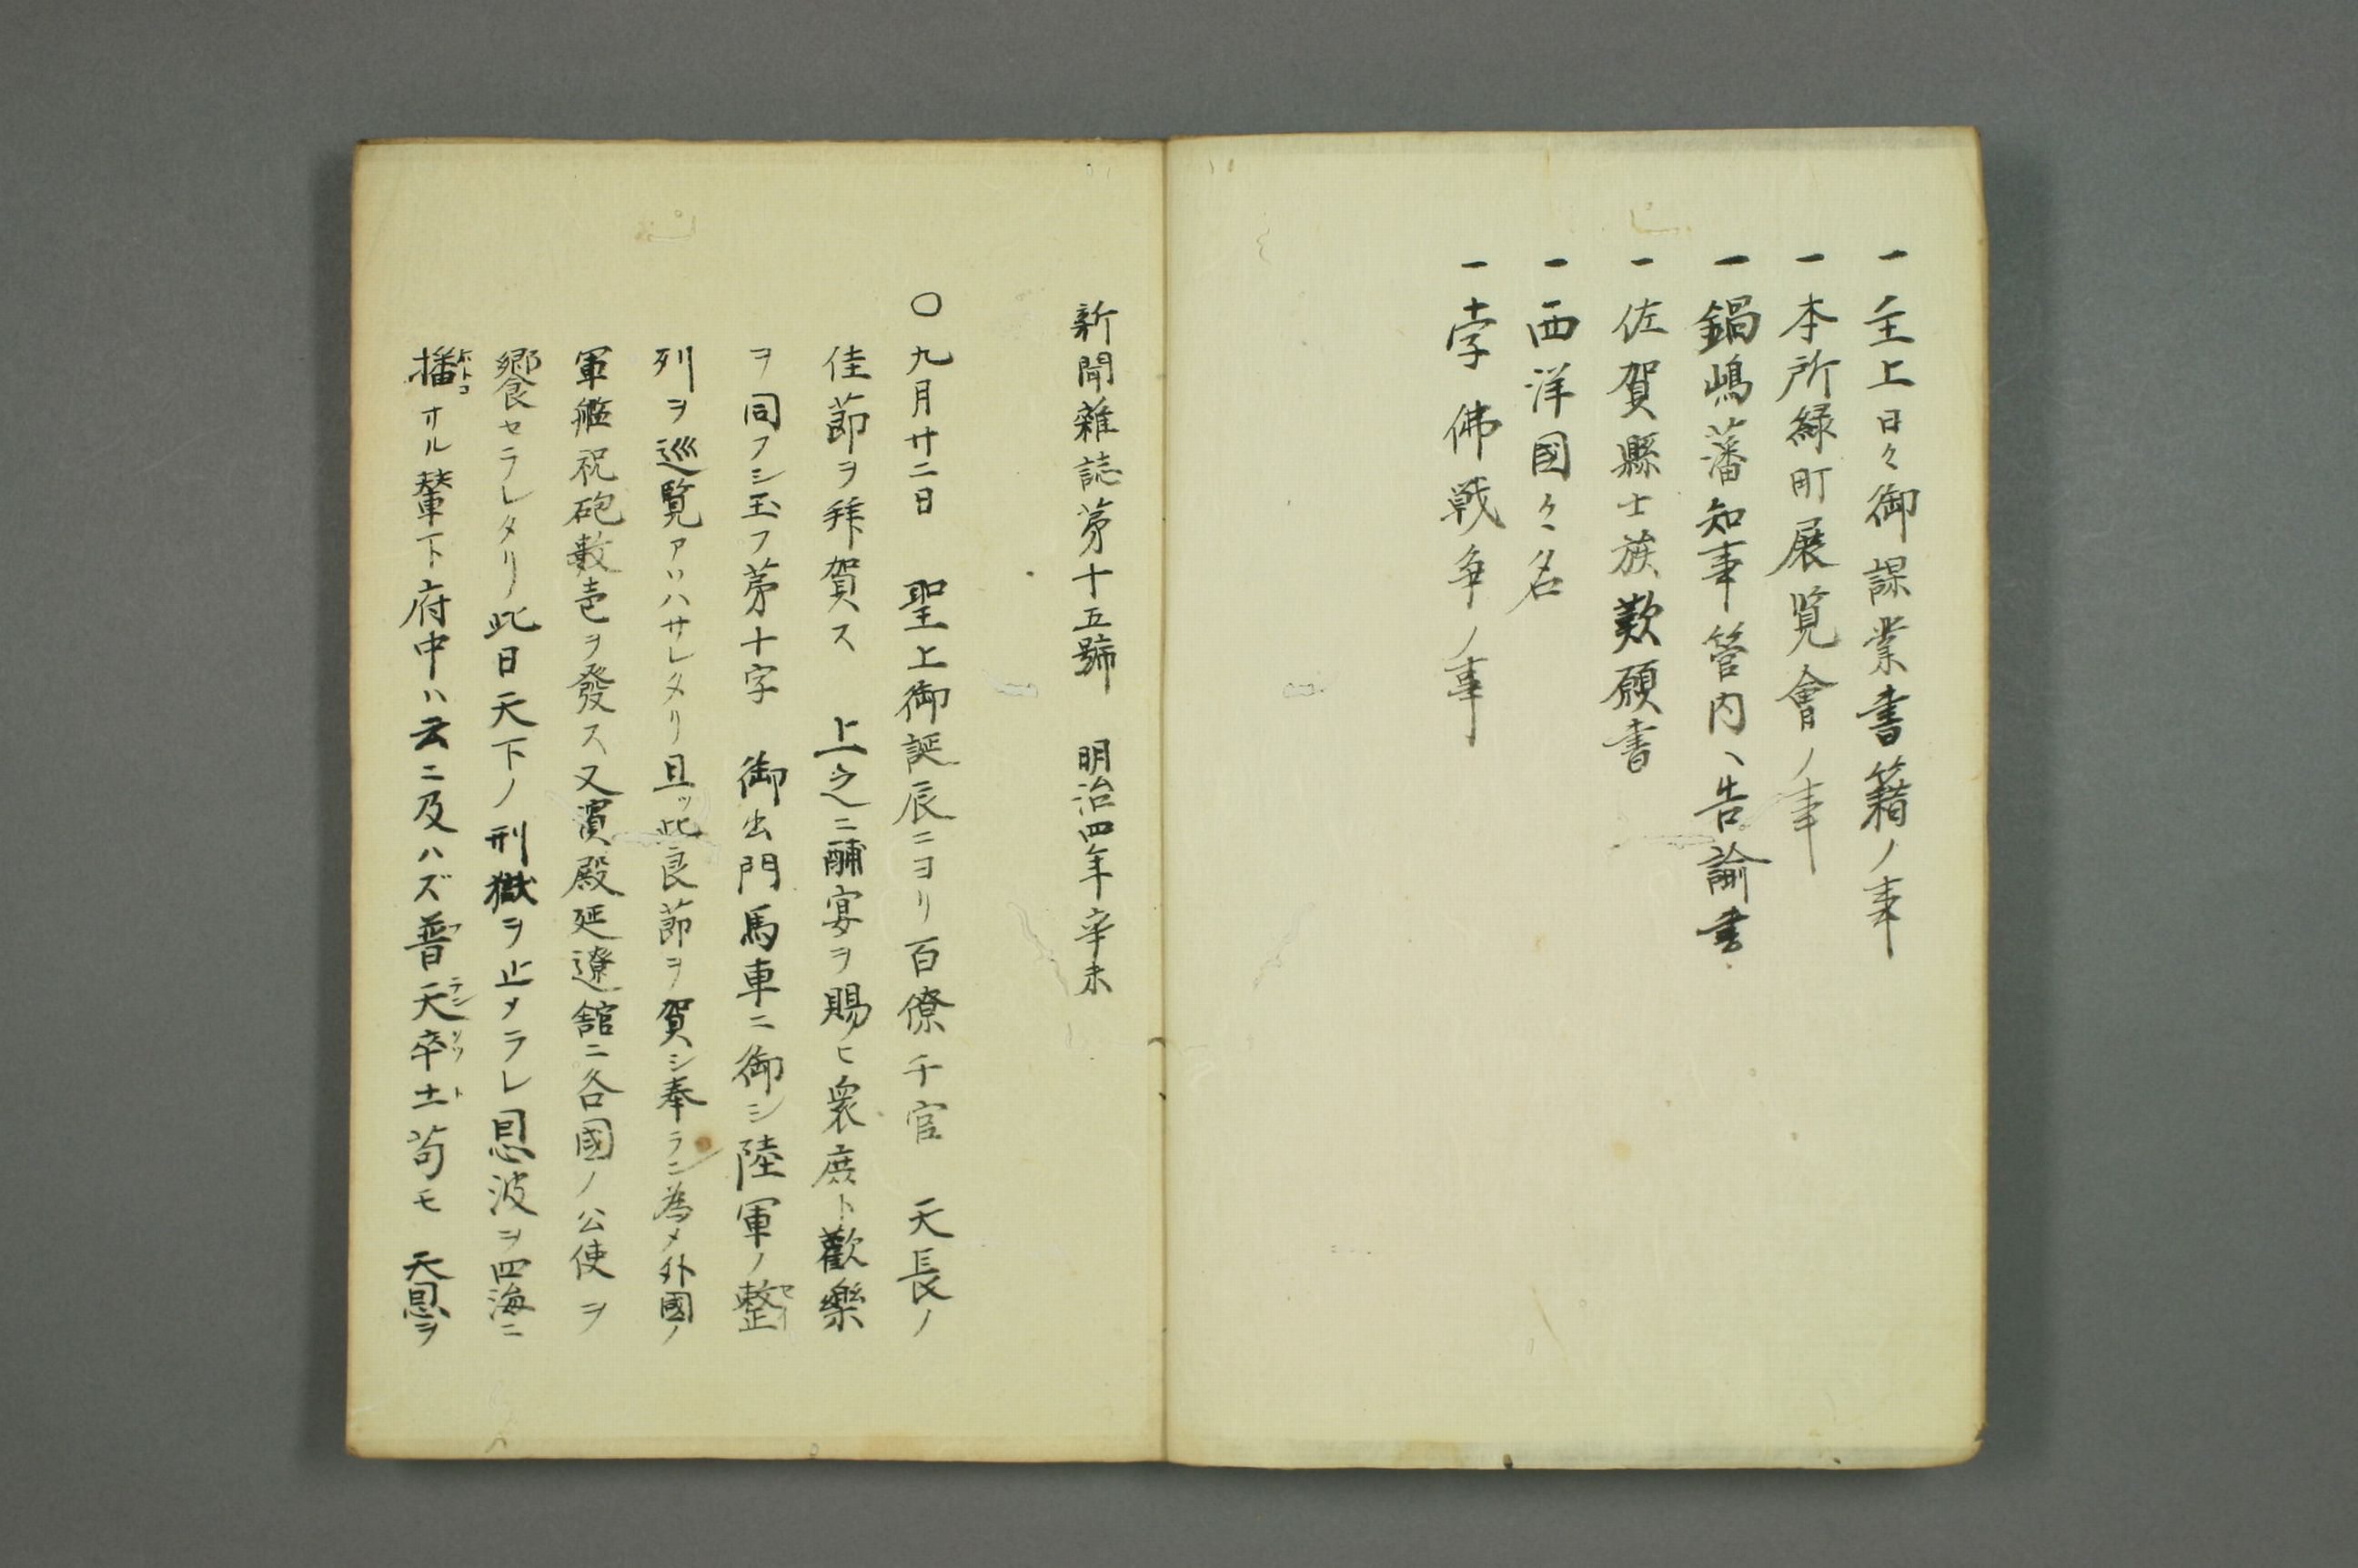 一主上日々御課業書籍ノ事
一本所緑町展覧會ノ事
一鍋嶋藩知事管内ヘ告諭書
一佐賀縣士族歎願書
一西洋國々名
一孛佛戦争ノ事
新聞雜誌苐十五號 明治四年辛未
○九月廿二日 聖上御誕辰ニヨリ百僚千官 天長ノ
佳莭ヲ拜賀ス 上之ニ酺宴ヲ賜ヒ衆庶ト歡樂
ヲ同フシ玉フ苐十字 御出門馬車ニ御シ陸軍ノ整セイ
列ヲ巡覧アハサレタリ且ッ此良莭ヲ賀シ奉ラン為メ外國ノ
軍艦祝砲數壱ヲ發ス又濵殿延遼舘ニ各國ノ公使ヲ
饗セラレタリ此日天下ノ刑獄ヲ止メラレ恩波ヲ四海ニ
播ホトコオル輦下府中ハ云ニ及ハズ普フ天テン卒ソツ土ト苟モ 天恩ヲ